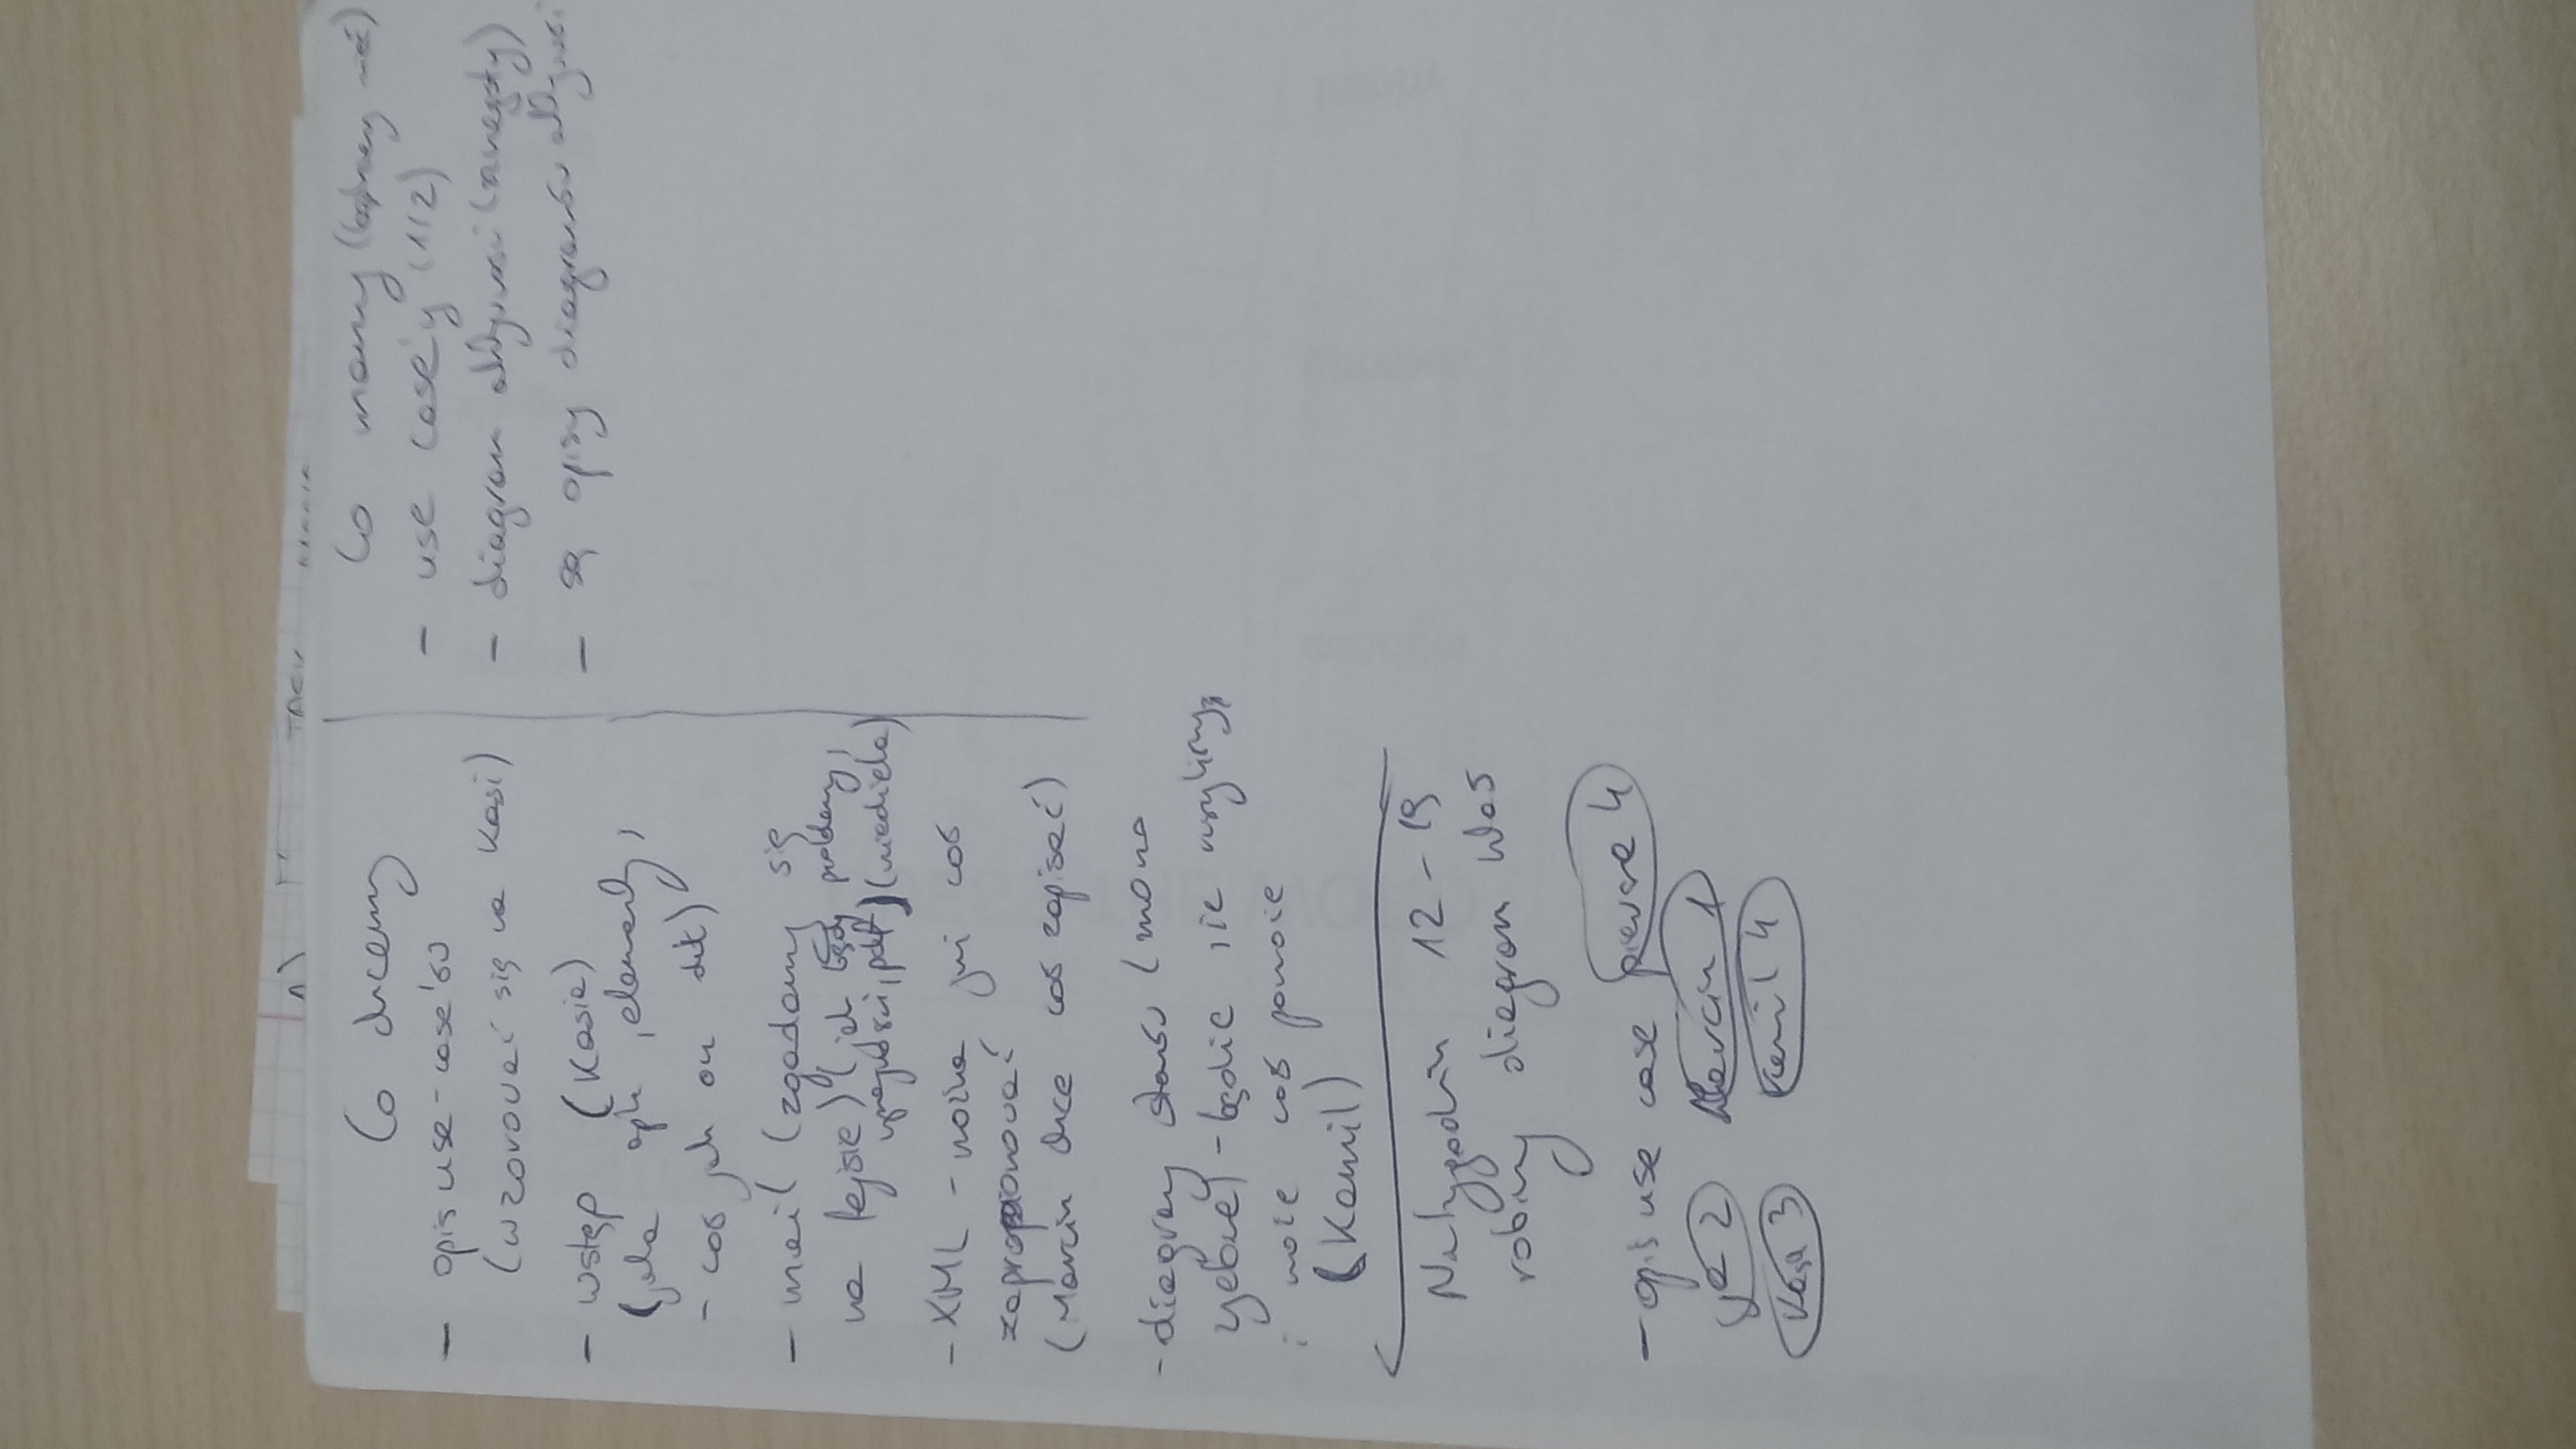 Co chcemy
- opis use-case'ów
(wzorować się na Kasi)
- wstęp (Kasia)
(jaka apk, elementy,
- coś jak on dał)
- mail (zgadamy się
na fejsie) (jak będą problemy,
(niedziela)
- XML - można już coś
zaproponować
(Marcin chce coś zapisać)
- diagramy stanów (można
- będzie źle
i może coś pomoże
(Kamil)
Na tygodniu 12-19
robimy diagram klas
- opis use case pierwsze 4
2 Marcin 1
Kasia 3 Kamil 4
Co mamy
- use case'y (1/2)
- diagram aktywności
- są opisy diagramów aktywności